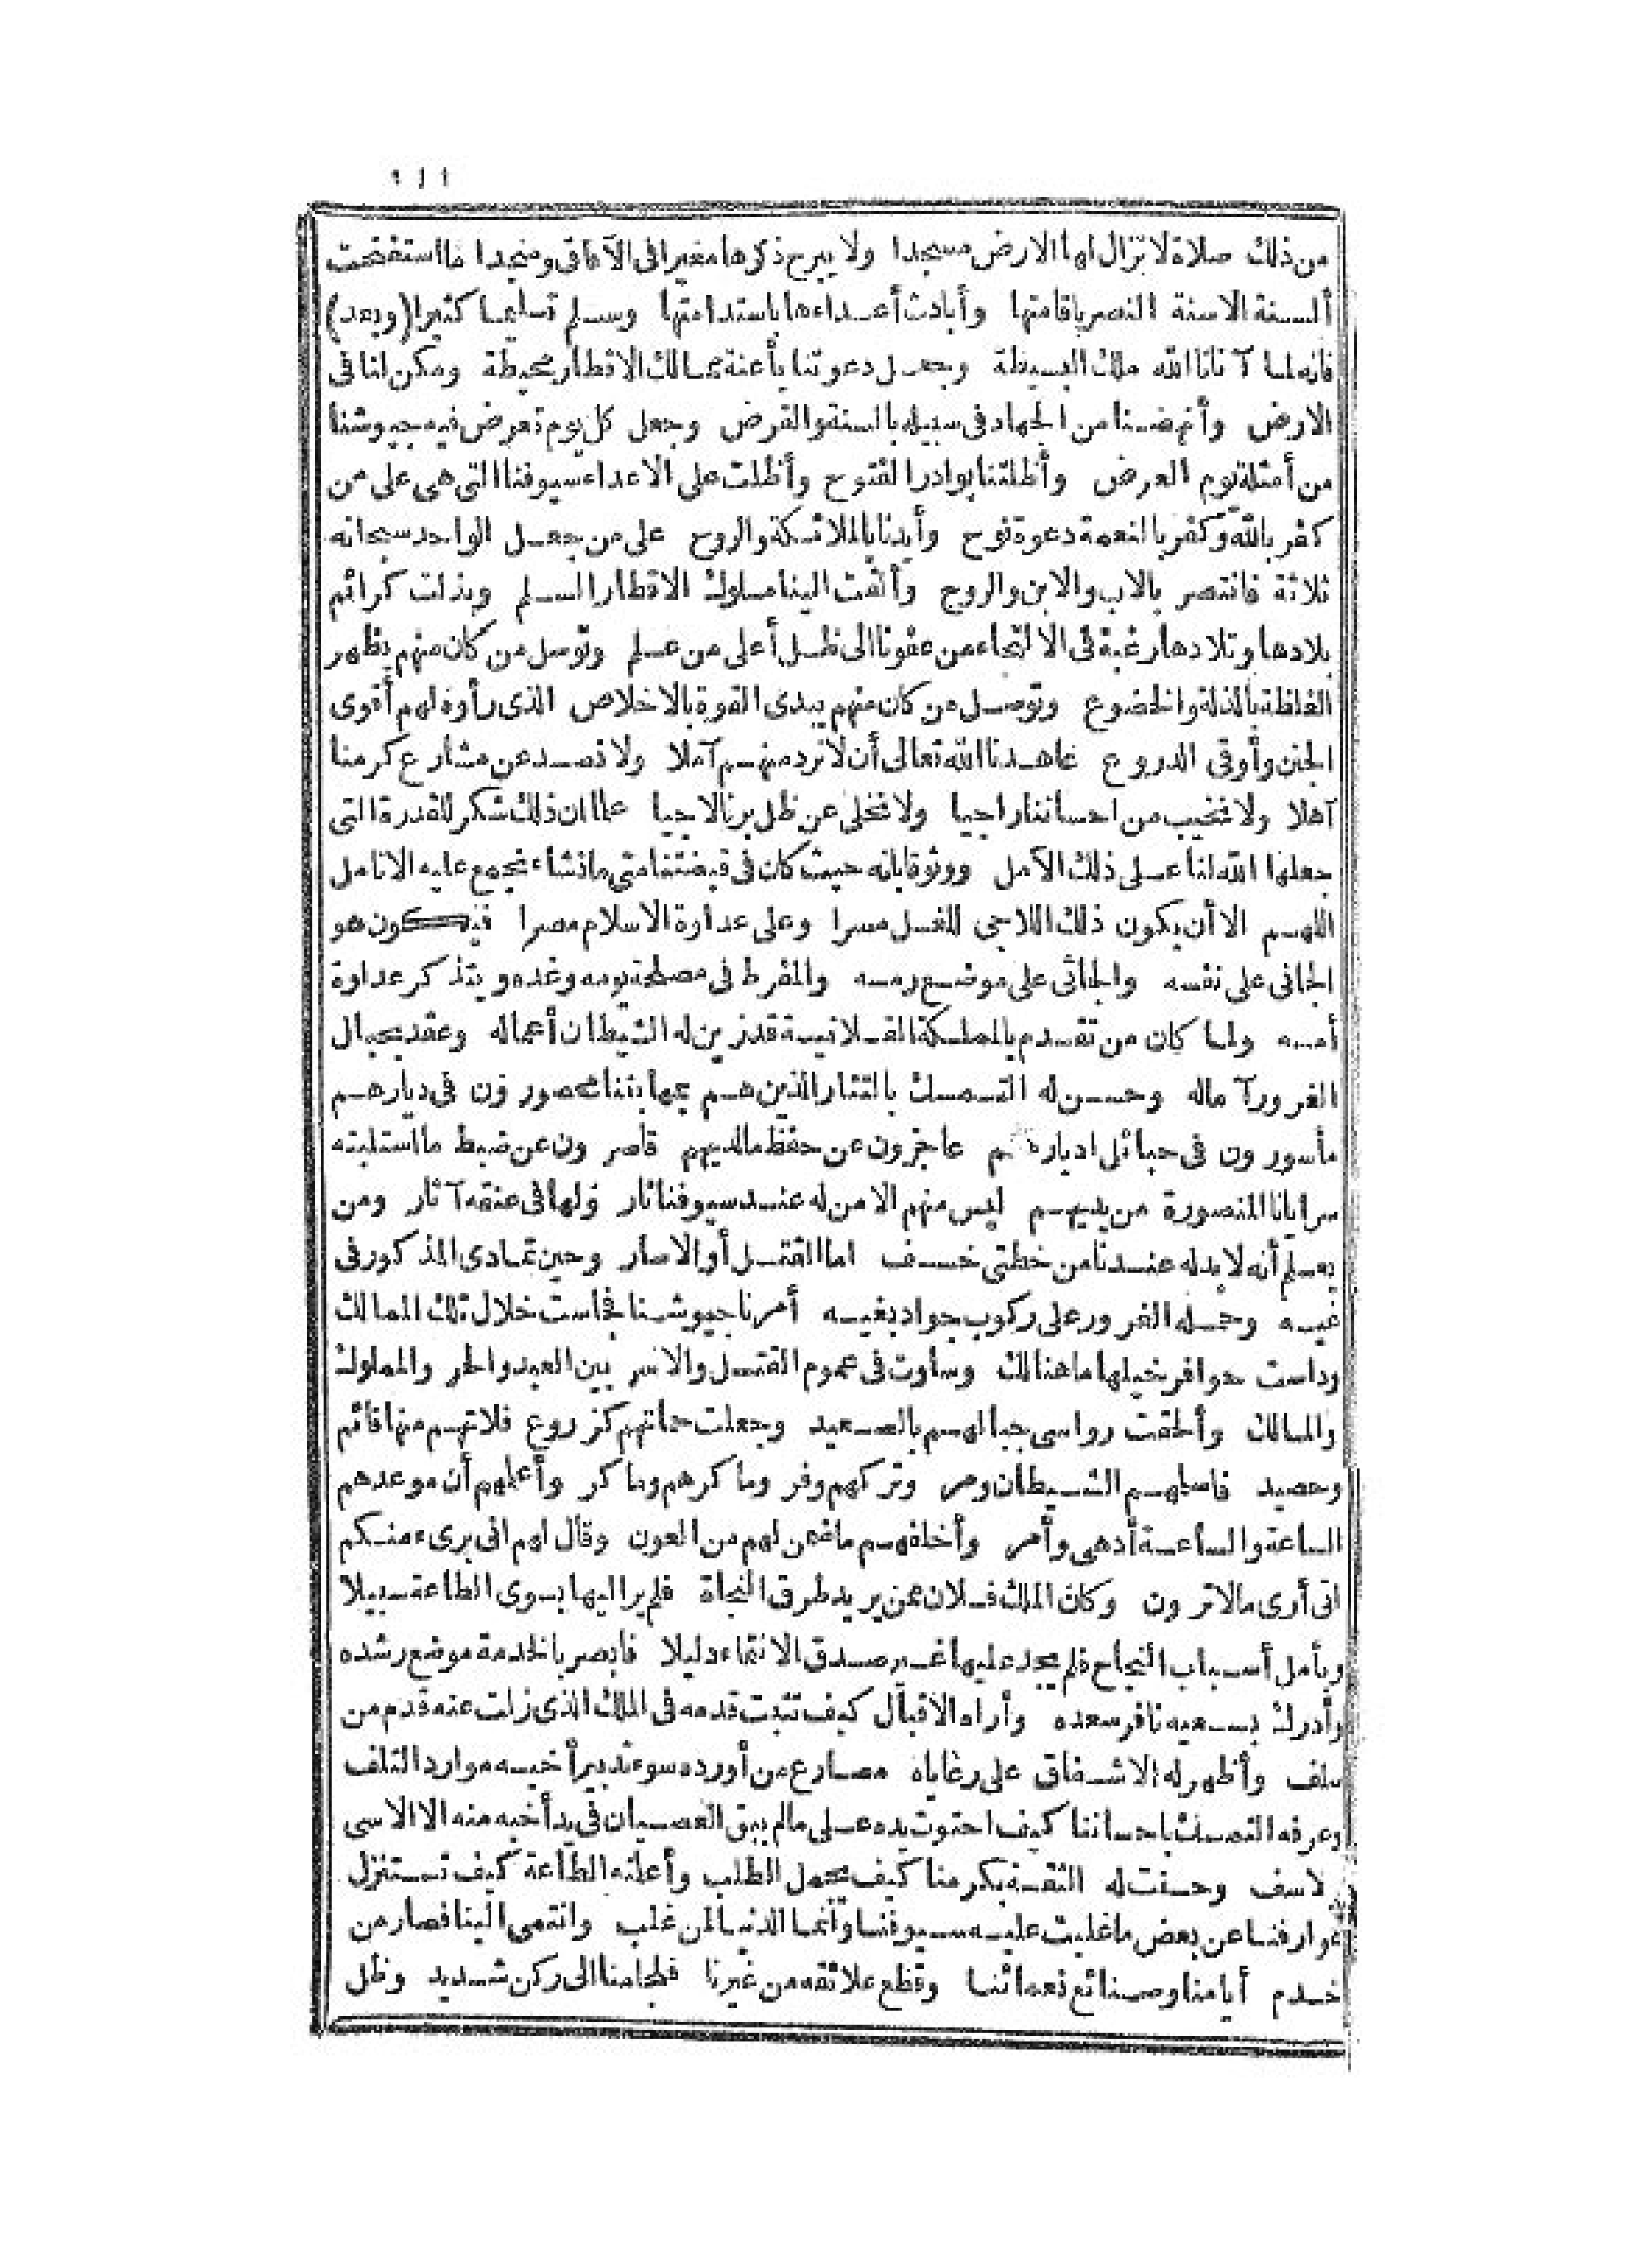 من ذلك صلاة لا تزال لها الارض مسجدا ولا يبرح ذكرها مغيرا فى الآفاق ومنجدا ما استفتحت
ألسنة الاسنة النصر باقامتها وأبادت أعداءها باستدامتها وسلم تسليما كثيرا (وبعد)
فانه لما آتانا الله ملك البسيطة وجعل دعوتنا بأعنة ممالك الاقطار محيطة ومكن لنا فى
الارض وأنهضنا من الجهاد فى سبيله بالسنة والفرض وجعل كل يوم تعرض فيه جيوشنا
من أمثلة يوم العرض وأظلتنا بوادر الفتوح وأظلت على الاعداء سيوفنا التى هى على من
كفر بالله وكفر بالنعمة دعوة نوح وأيدنا بالملائكة والروح على من جعل الواحد سبحانه
ثلاثة فانتصر بالاب والابن والروح وألقت الينا ملوك الاقطار السلم وبذلت كرائم
بلادها وتلادها رغبة فى الالتجاء من عفونا الى ظل أعلى من علم وتوسل من كان منهم يظهر
الغلظة بالذلة والخضوع وتوصل من كان منهم يبدى القوة بالاخلاص الذى رأوه لهم أقوى
الجنن وأوقى الدروع عاهدنا الله تعالى أن لا نرد منهم آملا ولا نصد عن مشارع كرمنا
آهلا ولا نخيب من احساننا راجيا ولا نخلى عن ظل برنا لاجيا علما ان ذلك شكر للقدرة التى
جعلها الله لنا على ذلك الآمل ووثوقا بانه حيث كان فى قبضتنا متى ما نشاء نجمع عليه الانامل
اللهم الا أن يكون ذلك اللاجى للغل مسرا وعلى عداوة الاسلام مصرا فيكون هو
الجانى على نفسه والجاثى على موضع رمسه والمفرط فى مصلحة يومه وغده ويتذكر عداوة
أمسه ولما كان من تقدم بالمملكة الفلانية قد زين له الشيطان أعماله وعقد بحبال
الغرور آماله وحسن له التمسك بالتتار الذين هم بمهابتنا محصورون فى ديارهم
مأسورون فى حبائل ادبارهم عاجزون عن حفظ ما لديهم قاصرون عن ضبط ما استلبته
سرايانا المنصورة من يديهم ليس منهم الا من له عند سيوفنا ثار ولها فى عنقه آثار ومن
يعلم أنه لا بد له عندنا من خطتى خسف اما القتل أو الاسار وحين تمادى المذكور فى
غيه وحمله الغرور على ركوب جواد بغيه أمرنا جيوشنا فجاست خلال تلك الممالك
وداست حوافر خيلها ما هنالك وساوت فى عموم القتل والاسر بين العبد والحر والمملوك
والمالك وألحقت رواسى جبالهم بالصعيد وجعلت حماتهم كزروع فلاتهم منها قائم
وحصيد فاسلمهم الشيطان ومر وتركهم وفر وما كرهم وما كر وأعلمهم أن موعدهم
الساعة والساعة أدهى وأمر وأخلفهم ما ضمن لهم من العون وقال لهم انى برىء منكم
انى أرى ما لا ترون وكان الملك فلان ممن يريد طرق النجاة فلم ير اليها بسوى الطاعة سبيلا
ويأمل أسباب النجاح فلم يجد عليها غير صدق الانتماء دليلا فابصر بالخدمة موضع رشده
وأدرك بسعيه نافر سعده وأراه الاقبال كيف تثبت قدمه فى الملك الذى زلت عنه قدم من
سلف وأظهر له الاشفاق على رعاياه مصارع من أورده سوء تدبير أخيه موارد التلف
وعرفه التمسك باحساننا كيف احتوت يده على مالم يبق العصيان فى يد أخيه منه الا الاسى
لاسف وحسنت له الثقة بكرمنا كيف يجمل الطلب وأعلمته الطاعة كيف تستنزل
عوارفنا عن بعض ما غلبت عليه سيوفنا وانما الدنيا لمن غلب وانتمى الينا فصار من
خدم أيامنا وصنائع نعمائنا وقطع علائقه من غيرنا فلجأ منا الى ركن شديد وظل